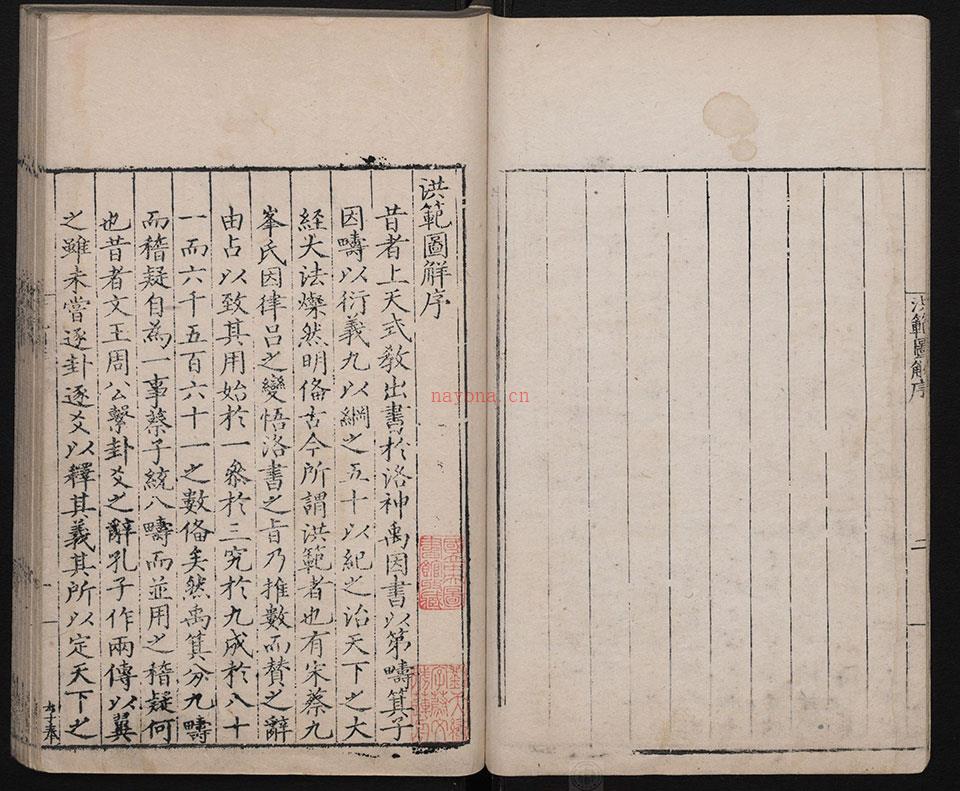 洪範圖解序
二
洪範圖觧序
昔者上天式教出書於洛神禹因書以第疇箕子
因疇以衍義九以綱之五十以紀之治天下之大
經大法燦然明俻古今所謂洪範者也有宋蔡九
峯氏因律吕之變悟洛書之旨乃推數而賛之辭
由占以致其用始於一叅於三究於九成於八十
一而六千五百六十一之數俻矣然禹箕分九疇
而稽疑自為一事蔡子統八疇而並用之稽疑何
也昔者文王周公繫卦爻之辭孔子作兩傳以翼
之雖未嘗逐卦逐爻以釋其義其所以定天下之
國立北平圖書館藏
nayona.cn